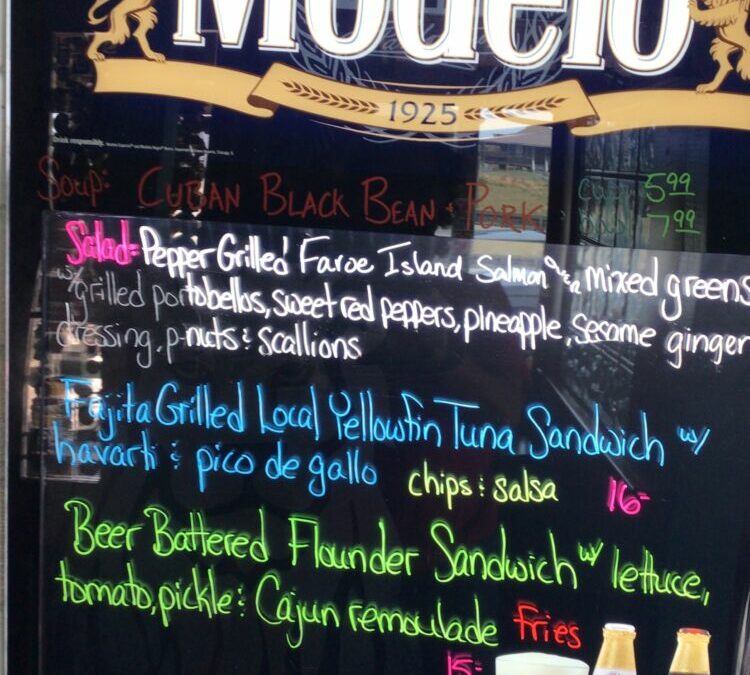 Modelo
1925
Drink responsibly.
Soup: CUBAN BLACK BEAN + PORK cup 5.99
bowl 7.99
Salad= Pepper Grilled Faroe Island Salmon over mixed greens
w/ grilled portobellos, sweet red peppers, pineapple, sesame ginger
dressing, p-nuts & scallions
Fajita Grilled Local Yellowfin Tuna Sandwich w/
havarti & pico de gallo chips & salsa 16-
Beer Battered Flounder Sandwich w/ lettuce,
tomato, pickle & Cajun remoulade Fries
15-